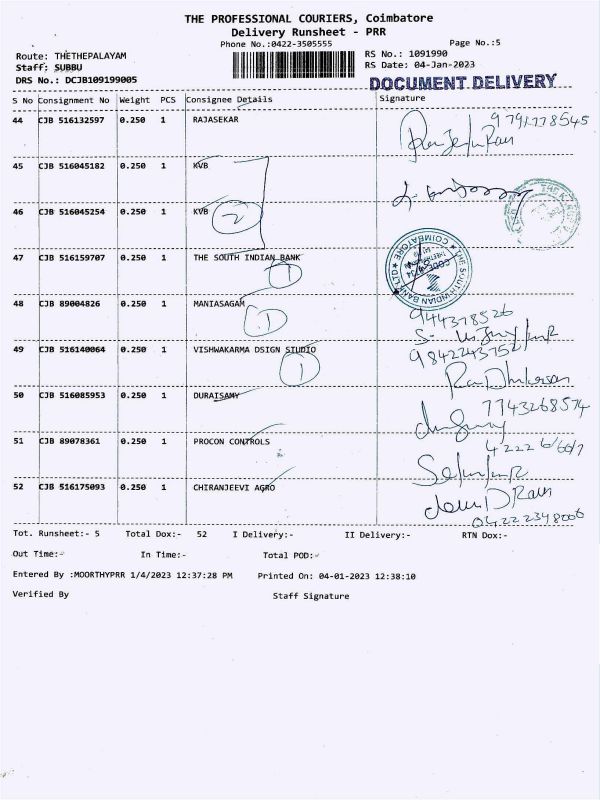 THE PROFESSIONAL COURIERS, Coimbatore
Delivery Runsheet - PRR
Phone No.:0422-3505555
Page No.:5
Route: THETHEPALAYAM
RS No.: 1091990
Staff: SUBBU
RS Date: 04-Jan-2023
DRS No.: DCJB109199005
DOCUMENT DELIVERY
S No Consignment No Weight PCS Consignee Details Signature
44 CJB 516132597 0.250 1 RAJASEKAR
45 CJB 516045182 0.250 1 KVB
46 CJB 516045254 0.250 1 KVB 2
47 CJB 516159707 0.250 1 THE SOUTH INDIAN BANK 1
THE SOUTH INDIAN BANK LTD
COIMBATORE
48 CJB 89004826 0.250 1 MANIASAGAM 1
49 CJB 516140064 0.250 1 VISHWAKARMA DSIGN STUDIO 1
9842243752
50 CJB 516085953 0.250 1 DURAISAMY 7743268574
51 CJB 89078361 0.250 1 PROCON CONTROLS
52 CJB 516175093 0.250 1 CHIRANJEEVI AGRO
Tot. Runsheet:- 5 Total Dox:- 52 I Delivery:- II Delivery:- RTN Dox:-
Out Time:- In Time:- Total POD:-
Entered By :MOORTHYPRR 1/4/2023 12:37:28 PM Printed On: 04-01-2023 12:38:10
Verified By Staff Signature